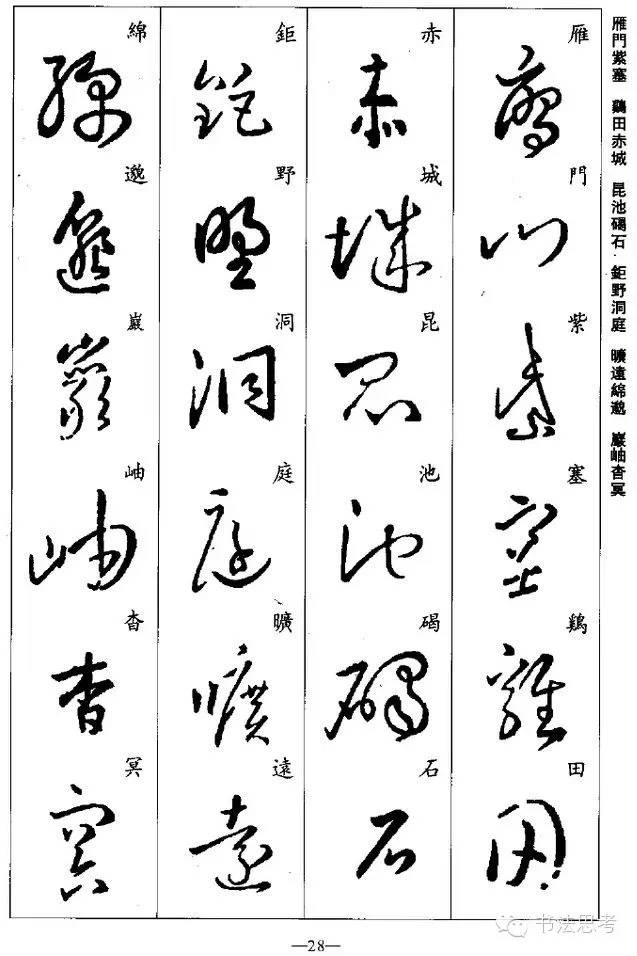 雁門紫塞 鷄田赤城 昆池碣石 鉅野洞庭 曠遠綿邈 巖岫杳冥
雁門紫塞鷄田
赤城昆池碣石
鉅野洞庭曠遠
綿邈巖岫杳冥
—28—
书法思考